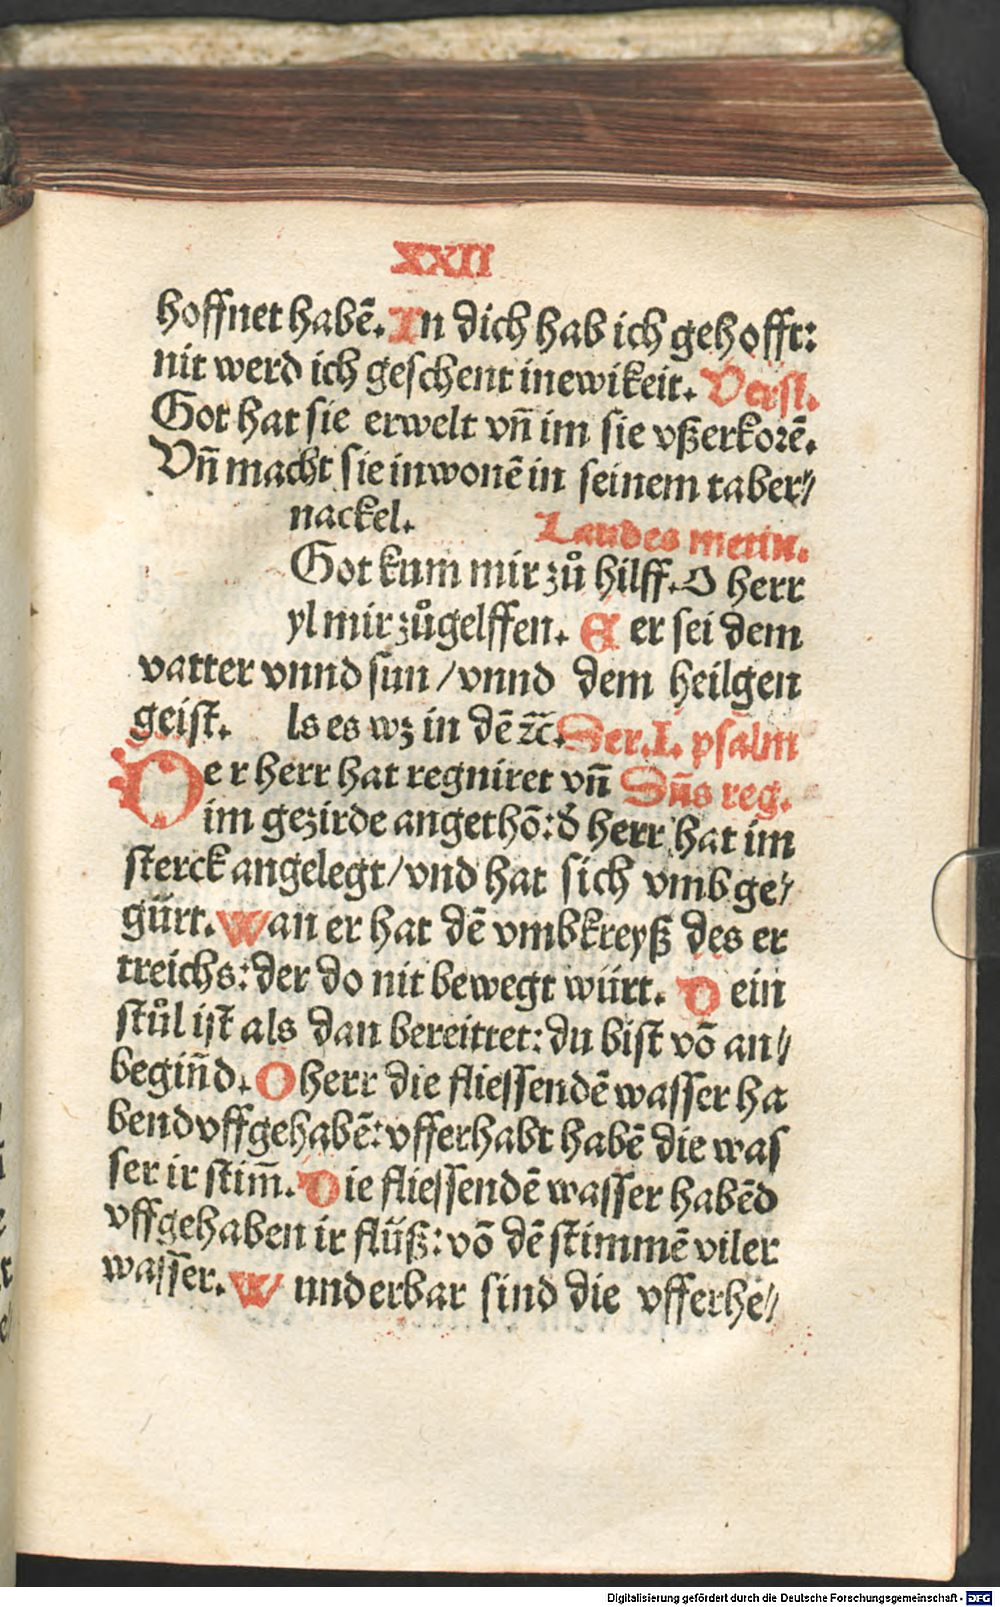 XXII
hoffnet habẽ. In dich hab ich gehofft:
nit werd ich geschent in ewikeit. Versl.
Got hat sie erwelt vñ im sie vßerkorẽ.
Vñ macht sie inwonẽ in seinem taber⸗
nackel. Laudes metin.
Got kum mir zů hilff. O herr
yl mir zů gelffen. E er sei dem
vatter vnnd sun / vnnd dem heilgen
geist. ls es wz in dẽ ⁊c̃. Der. I. psalm
De r herr hat regniret vñ Dñs reg.
im gezirde angethõ: d̕ herr hat im
sterck angelegt / vnd hat sich vmb ge⸗
gürt. Wan er hat dẽ vmbkreyß des er
treichs: der do nit bewegt würt. D ein
stůl ist als dan bereittet: du bist võ an⸗
begiñd. O herr die fliessendẽ wasser ha
bend vffgehabẽ: vfferhabt habẽ die was
ser ir stim̃. Die fliessendẽ wasser habẽd
vffgehaben ir flüß: võ dẽ stimmẽ viler
wasser. W underbar sind die vfferhe⸗
Digitalisierung gefördert durch die Deutsche Forschungsgemeinschaft - DFG